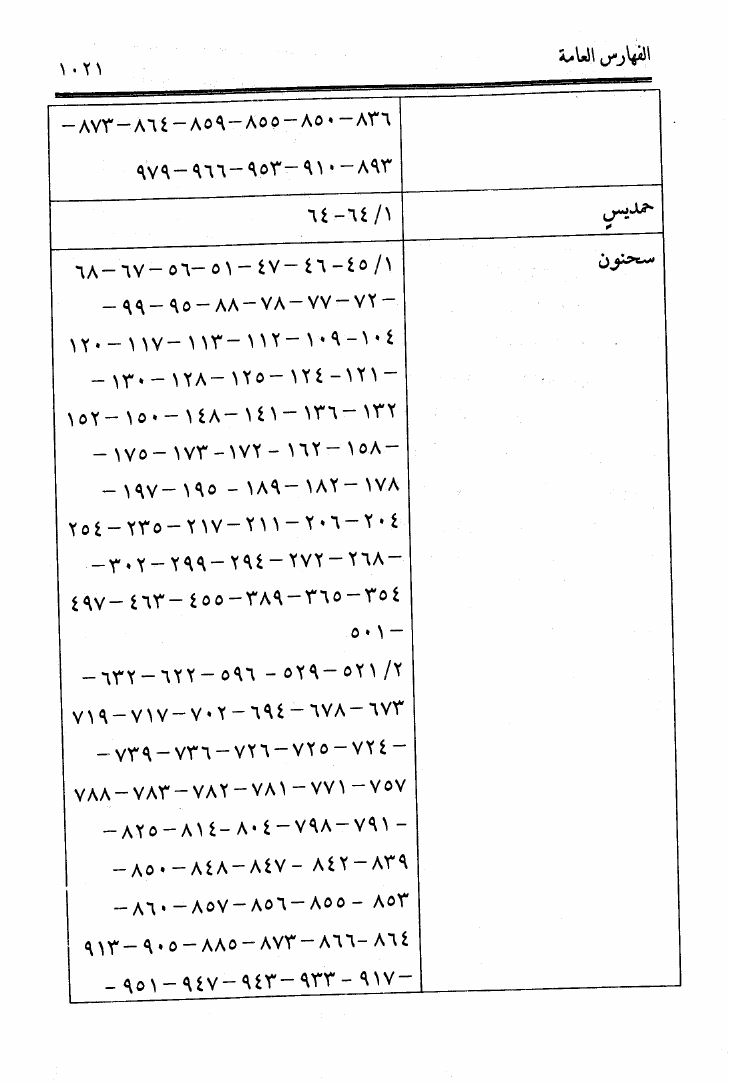 الفهارس العامة
١٠٢١
٨٣٦-٨٥٠-٨٥٥-٨٥٩-٨٦٤-٨٧٣-
٨٩٣-٩١٠-٩٥٣-٩٦٦-٩٧٩
حمديس
١/ ٦٤-٦٤
سحنون
١/ ٤٥-٤٦-٤٧-٥١-٥٦-٦٧-٦٨
-٧٢-٧٧-٧٨-٨٨-٩٥-٩٩-
١٠٤-١٠٩-١١٢-١١٣-١١٧-١٢٠
-١٢١-١٢٤-١٢٥-١٢٨-١٣٠-
١٣٢-١٣٦-١٤١-١٤٨-١٥٠-١٥٢
-١٥٨-١٦٢-١٧٢-١٧٣-١٧٥-
١٧٨-١٨٢-١٨٩-١٩٥-١٩٧-
٢٠٤-٢٠٦-٢١١-٢١٧-٢٣٥-٢٥٤
-٢٦٨-٢٧٢-٢٩٤-٢٩٩-٣٠٢-
٣٥٤-٣٦٥-٣٨٩-٤٥٥-٤٦٣-٤٩٧
-٥٠١
٢/ ٥٢١-٥٢٩-٥٩٦-٦٢٢-٦٣٢-
٦٧٣-٦٧٨-٦٩٤-٧٠٢-٧١٧-٧١٩
-٧٢٤-٧٢٥-٧٢٦-٧٣٦-٧٣٩-
٧٥٧-٧٧١-٧٨١-٧٨٢-٧٨٣-٧٨٨
-٧٩١-٧٩٨-٨٠٤-٨١٤-٨٢٥-
٨٣٩-٨٤٢-٨٤٧-٨٤٨-٨٥٠-
٨٥٣-٨٥٥-٨٥٦-٨٥٧-٨٦٠-
٨٦٤-٨٦٦-٨٧٣-٨٨٥-٩٠٥-٩١٣
-٩١٧-٩٣٣-٩٤٣-٩٤٧-٩٥١-